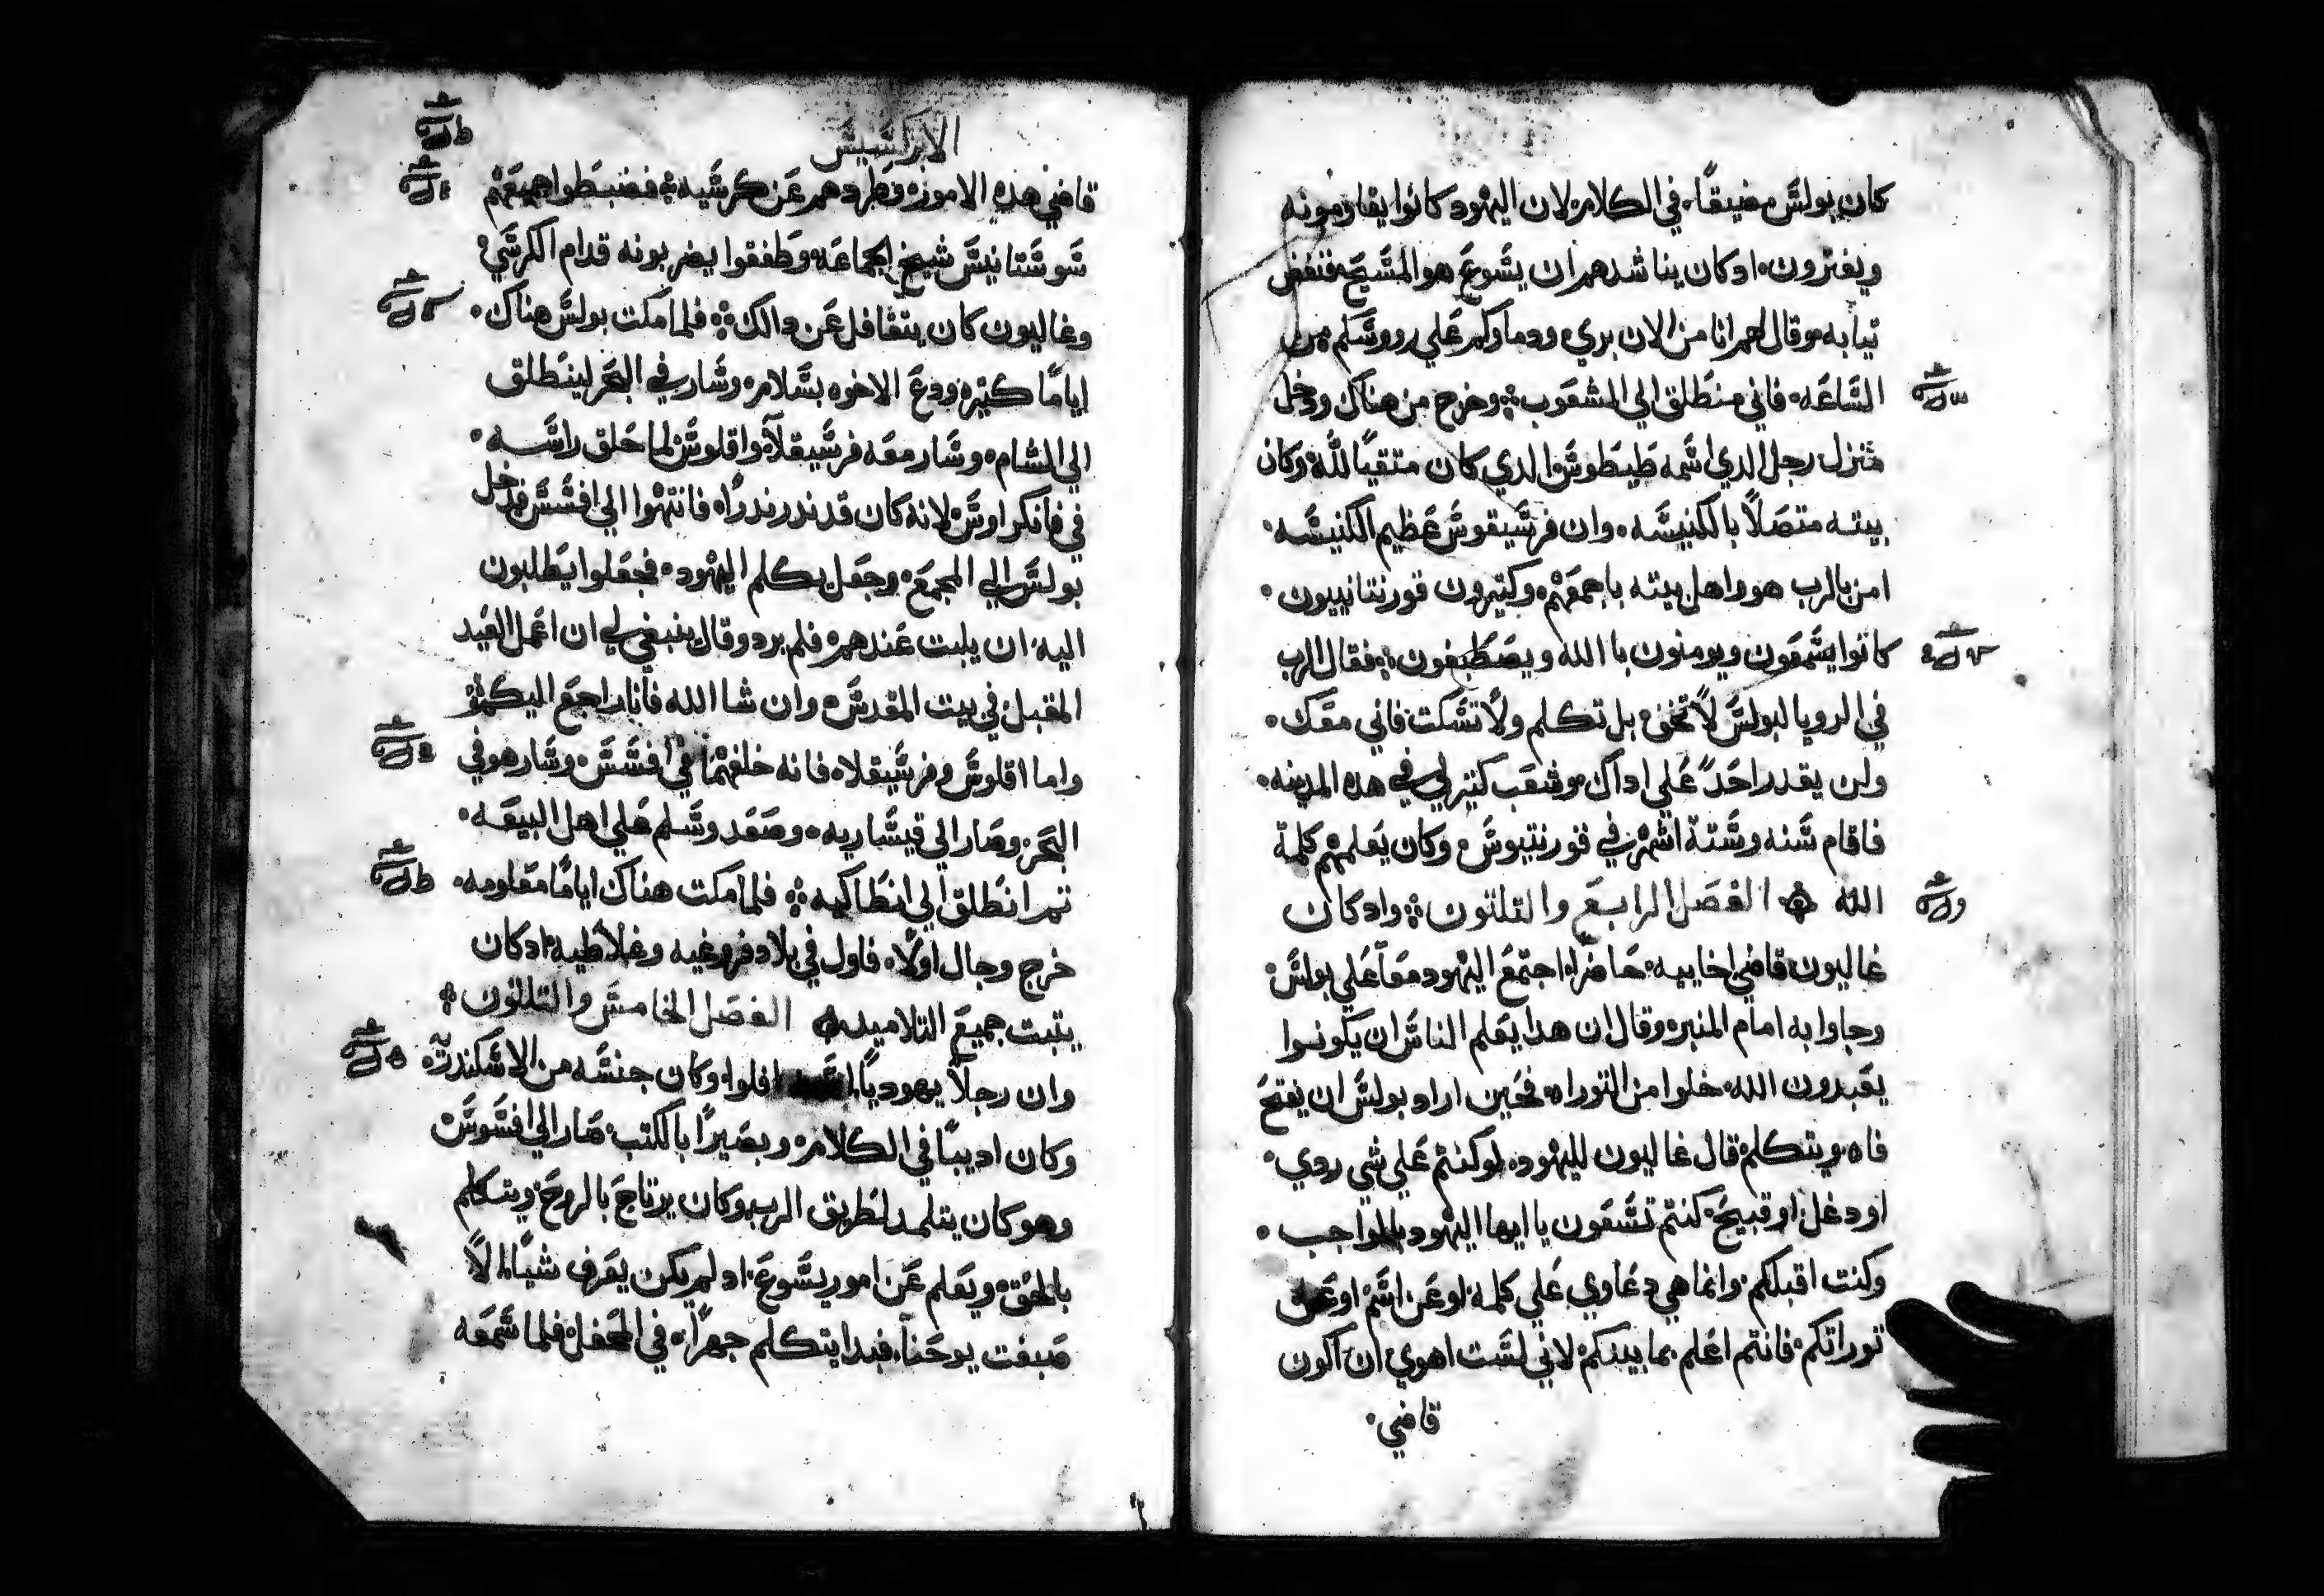 كان بولس مضيقًا. في الكلام لان اليهود كانوا يقاومونه
ويفترون. ادكان يناشدهم ان يشوع هو المسيح فنفض
تيابه وقال لهم انا من الان بري ودماوكم علي رووسكم من
الساعه. فاني منطلق الي الشعوب وخرج من هناك ودخل
منزل رجل الدي اسمه طيطوس الدي كان متقيًا لله وكان
بيته متصلًا بالكنيسه. وان فرسيقوس عظيم الكنيسه.
امن بالرب هو واهل بيته باجمعهم وكتيرون قورنتانييون.
كانوا يسمعون ويومنون با الله ويصطبغون فقال الرب
في الرويا لبولس لا تخف بل تكلم ولا تسكت فاني معك.
ولن يقدر احدً علي اداك وشعب كتير لي في هده المدينه.
فاقام سنه وستة اشهر في قورنتيوس وكان يعلمهم كلمة
الله الفصل الرابع والتلتون واد كان
غاليون قاضي اخاييه حاضرًا اجتمع اليهود معًا علي بولس
وجاوا به امام المنبر وقال ان هدا يعلم الناس ان يكونوا
يعبدون الله خلوا من التوراه فحين اراد بولس ان يفتح
فاه ويتكلم قال غاليون لليهود. لو كنتم علي شي ردي.
او دغل او قبيح كنتم تسعون يا ايها اليهود بالواجب.
وكنت اقبلكم وانما هي دعاوي علي كلمه او عن اسم او عن
توراتكم فانتم اعلم بما بينكم لاني لست اهوي ان اكون
قاضي.
الابركسيس
قاضي هده الامور وطردهم عن كرسيه فضبطوا جميعهم
سوستانيس شيخ الجماعه وطفقوا يضربونه قدام الكرسي
وغاليون كان يتغافل عن دالك فلما مكت بولس هناك.
ايامًا كتيره ودع الاخوه بسلام وسار في البحر لينطلق
الي الشام وسار معه فرسيقلا واقلوس لما حلق راسه.
في فانكراوس لانه كان قد ندر ندرًا فانتهوا الي افسس فدخل
بولس الي المجمع وجعل يكلم اليهود. فجعلوا يطلبون
اليه ان يلبت عندهم فلم يرد وقال ينبغي لي ان اعمل العيد
المقبل في بيت المقدس وان شا الله فانا راجع اليكم
واما اقلوس وفرسيقلا فانه خلفهما في افسس وسار هو في
البحر وصار الي قيساريه. وصعد وسلم علي اهل البيعه.
تم انطلق الي انطاكيه فلما مكت هناك ايامًا معلومه.
خرج وجال اولًا. فاول في بلاد فروغيه وغلاطيه ادكان
يتبت جميع التلاميد الفصل الخامس والتلتون
وان رجلًا يهوديًا اسمه افلوا وكان جنسه من الاسكندرية
وكان اديبًا في الكلام وبصيرًا بالكتب صار الي افسوس
وهو كان يتلمد لطريق الرب وكان يرتاح بالروح ويتكلم
بالحق ويعلم عن امور يسوع اد لم يكن يعرف شيًا الا
صبغت يوحنا. فبدا يتكلم جهرًا. في المحفل فلما سمعه